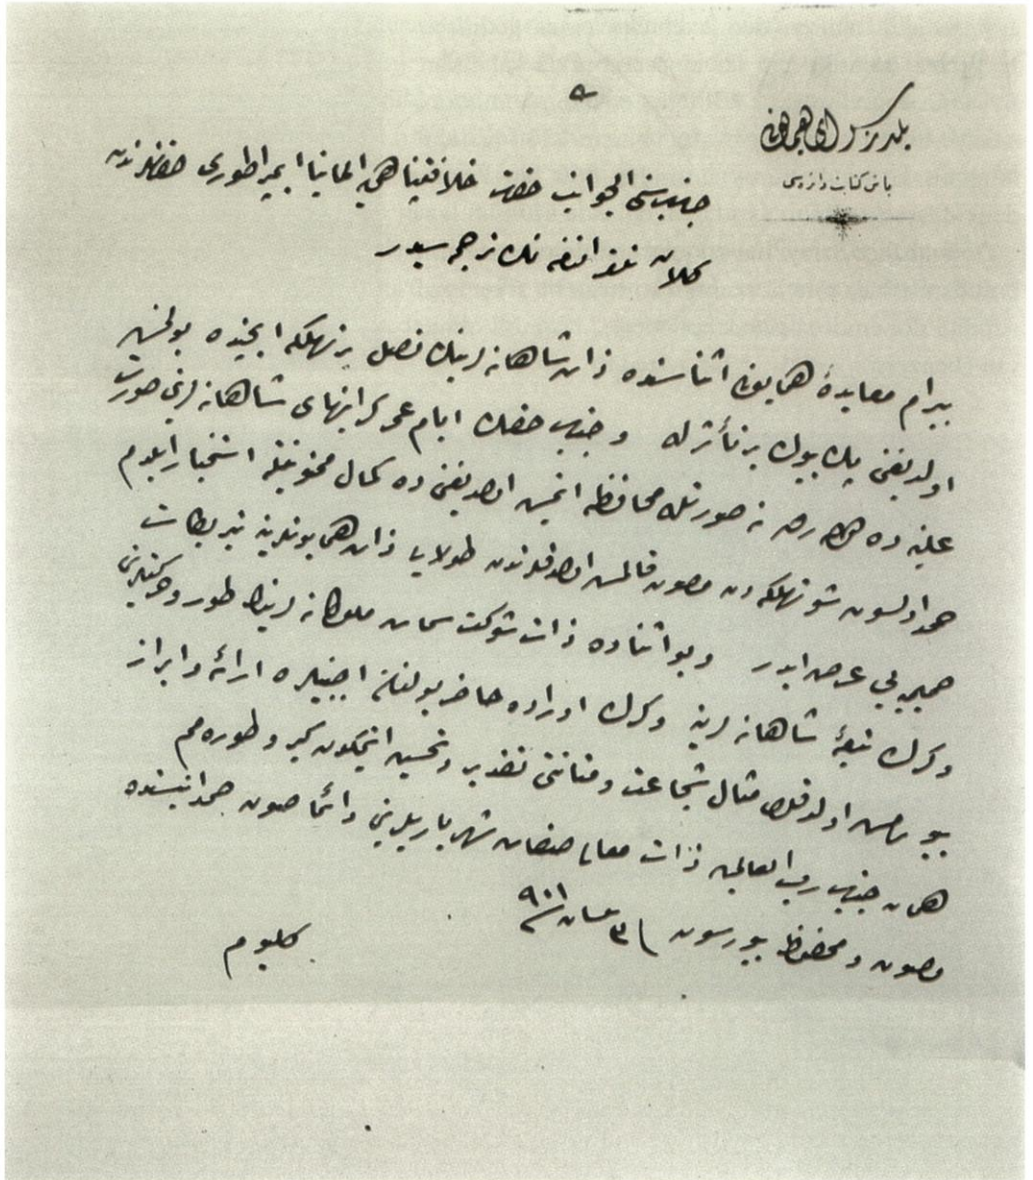 يلديز سراى همايونى
باش كتابت دائره‌سى
جناب سنى الجوانب حضرت خلافتپناهى‌يه المانيا ايمپراطورى حضرتلرندن
كلان تلغرافنامه‌نك ترجمه‌سيدر
بيرام معايدۀ همايونى اثناسنده ذات شاهانه‌لرينك نصل بر تهلكه ايچنده بولنمش
اولديغنى پك بيوك بر تأثرله و جناب حقك ايام عمر كرانبهاى شاهانه‌لرينى صورت
عليه‌ده هر نه صورتله محافظه ايتمش اولديغنى ده كمال ممنونيتله استخبار ايلدم
حمد اولسون شو تهلكه‌دن مصون قالمش اولدقلرندن طولايى ذات همايونلرينه تبريكات
صميميه‌مى عرض ايدر و بو اثناده ذات شوكتسمات ملوكانه‌لرينك طور و حركتلرينى
و كرك تبعۀ شاهانه‌لرينه و كرك اوراده حاضر بولنان اجنبيلره ارائه و ابراز
بيورمش اولدقلرى مثال شجاعت و متانتى تقدير و تحسين ايتمكدن كيرو طوره‌مم
همان جناب رب العالمين ذات معالى‌صفات شهرياريلرينى دائما صون صمدانيسنده
مصون و محفوظ بيورسون ٣ نيسان ٩٠١
كليوم